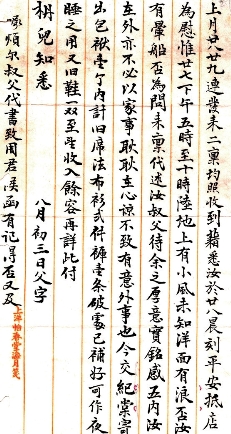 上月廿八廿九連發来二稟均照收到藉悉汝於廿八晨刻平安抵店
為慰惟廿七下午五時至十時陸地上有小風未知洋面有浪否汝
有暈船否為問来稟代述汝叔父待余之厚意實銘感五内汝
在外亦不必以家事耿耿在心諒不致有意外事也今交紀棠寄
出包袱壹个内計旧席法布衫弍件褲壹条破處已補好可作夜
睡之用又旧鞋一双至乞收入餘容再詳此付
枬兒知悉 八月初三日父字
囑煩尔叔父代書致周君信函有記得否又及